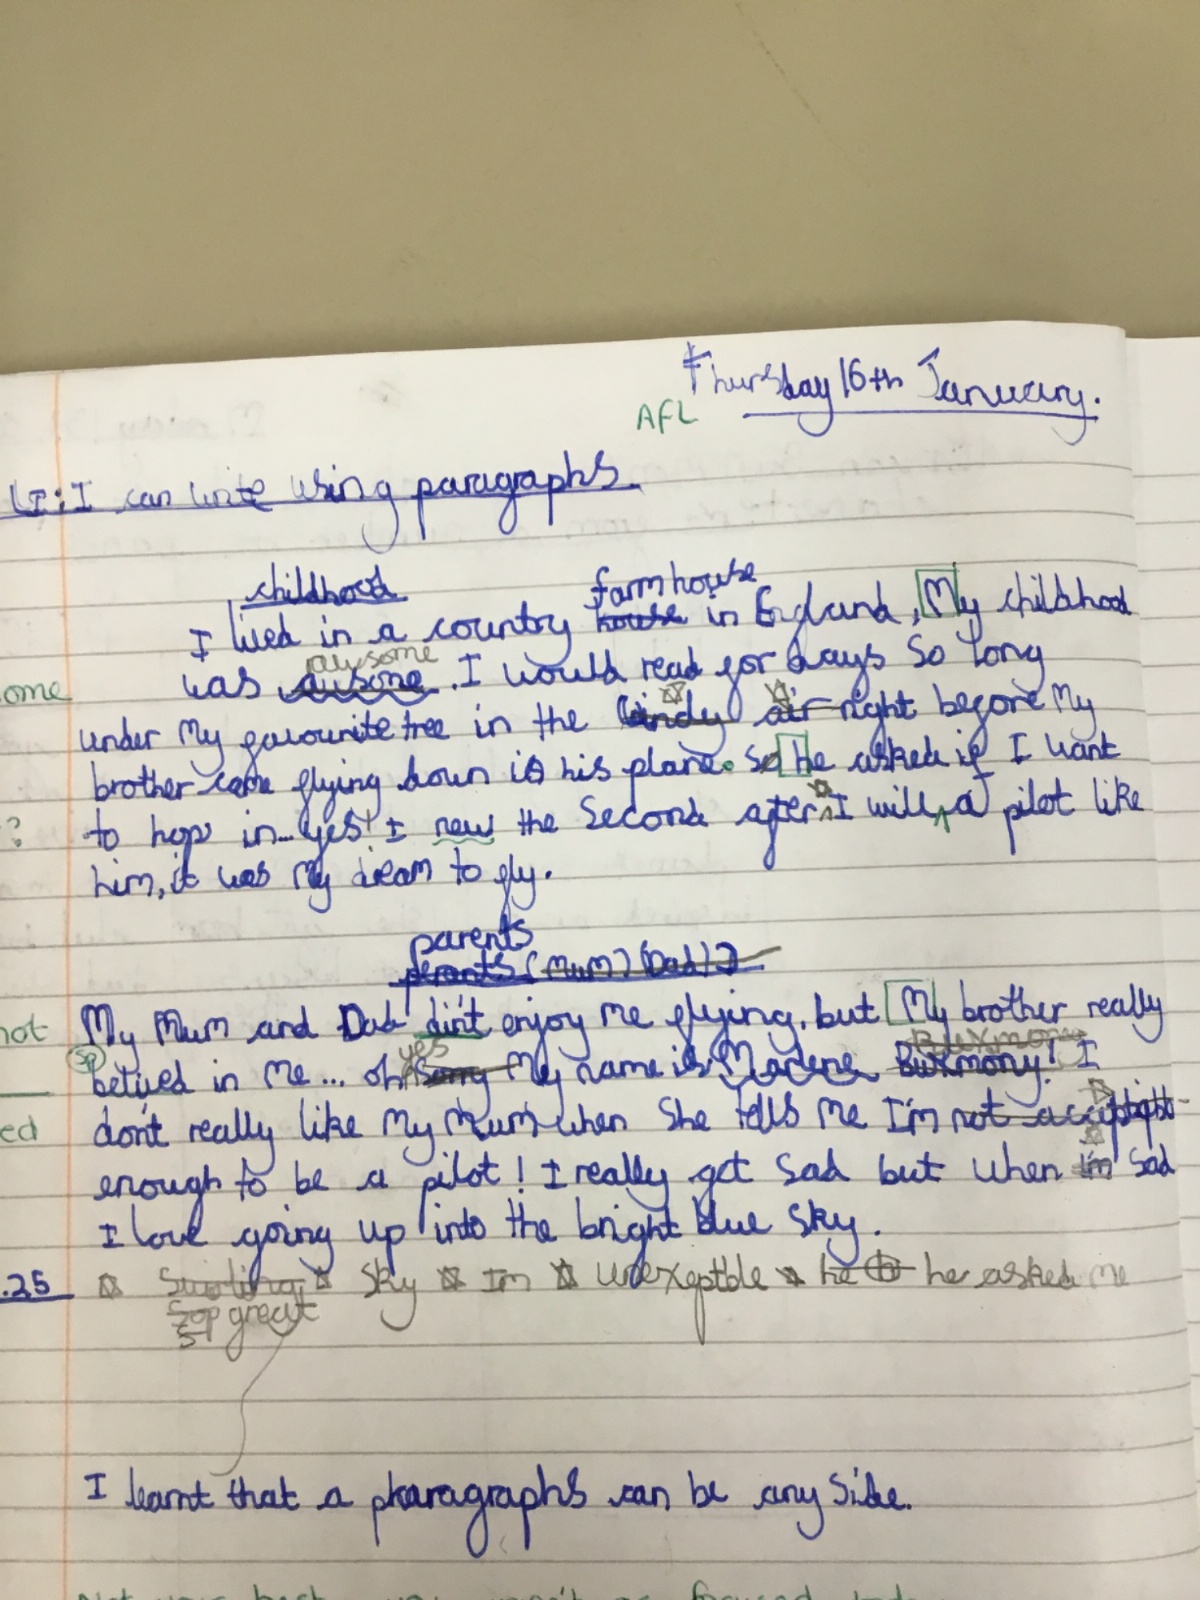 Thursday 16th January.
AFL
LI: I can write using paragraphs.
childhood
farmhouse
I lived in a country house in England, My childhood
awsome
ome was ausome. I would read for days so long
under My favourite tree in the windy air right before My
brother came flying down in his plane. So he asked if I want
? to hop in... yes! I new the second after I will a pilot like
him, it was My dream to fly.
parents
perants (Mum) (Dad)
not My Mum and Dad din't enjoy me flying, but My brother really
yes
sp belived in Me... oh sorry My name is Marlene Burmony! I
ed don't really like My Mum when She tells Me I'm not
enough to be a pilot! I really get sad but when I'm sad
I love going up into the bright blue sky.
.25 Sky Im unexeptble he to he asked me
great
I learnt that a pharagraphs can be any side.